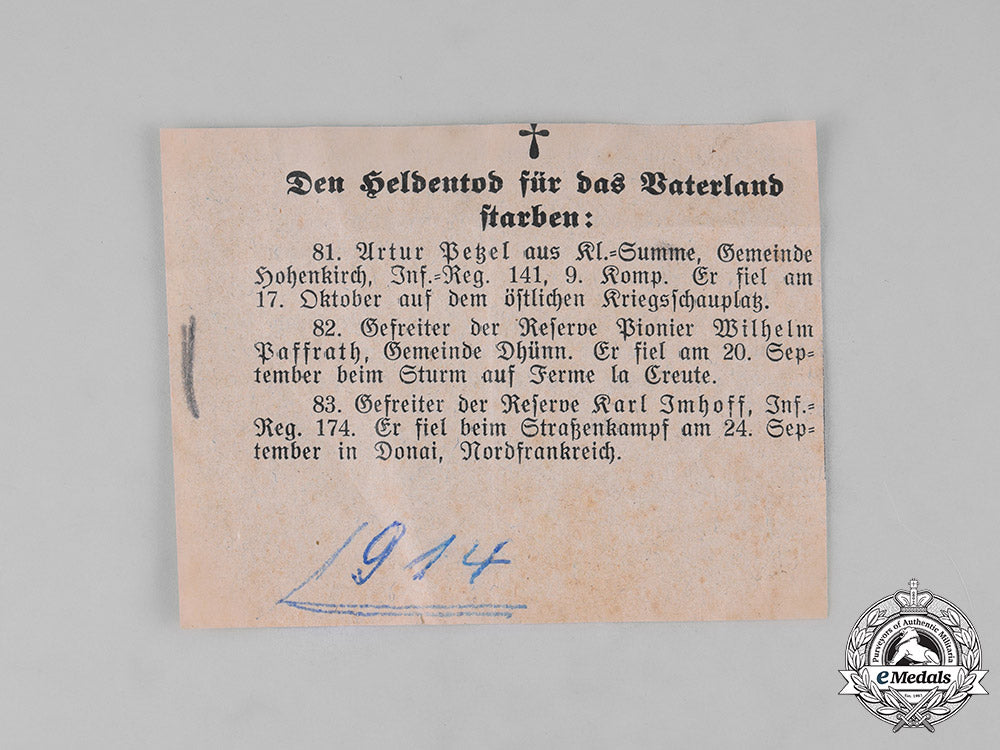 Den Heldentod für das Vaterland
starben:
81. Artur Petzel aus Kl.-Summe, Gemeinde
Hohenkirch, Inf.-Reg. 141, 9. Komp. Er fiel am
17. Oktober auf dem östlichen Kriegsschauplatz.
82. Gefreiter der Reserve Pionier Wilhelm
Paffrath, Gemeinde Dhünn. Er fiel am 20. Sep-
tember beim Sturm auf Ferme la Creute.
83. Gefreiter der Reserve Karl Imhoff, Inf.-
Reg. 174. Er fiel beim Straßenkampf am 24. Sep-
tember in Donai, Nordfrankreich.
1914
Purveyors of Authentic Militaria
eMedals